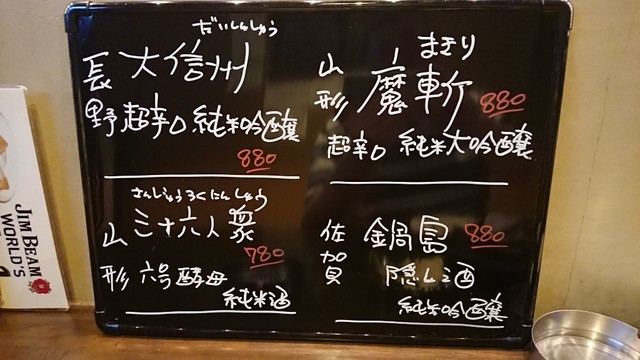 だいしんしゅう
長野
大信州
超辛口 純米吟醸
880
まきり
山形
魔斬
880
超辛口 純米大吟醸
さんじゅうろくにんしゅう
山形
三十六人衆
780
六号酵母
純米酒
佐賀
鍋島
880
隠し酒
純米吟醸
JIM BEAM
WORLD'S